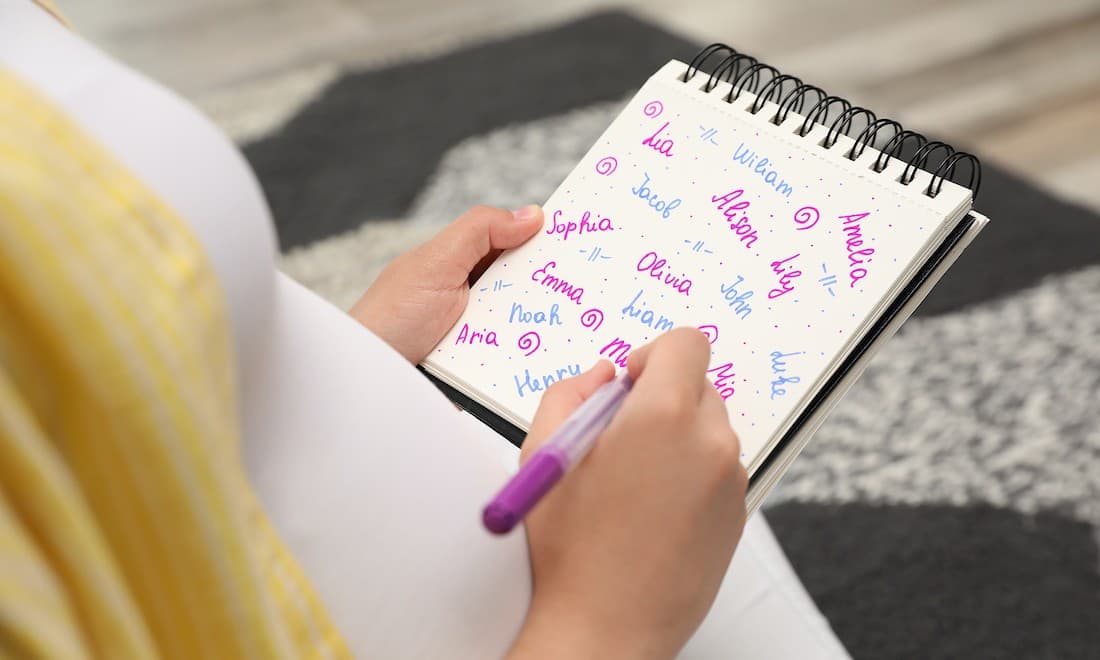 Lia
Wiliam
Jacob
Alison
Amelia
Sophia
Olivia
Lily
Emma
John
Noah
Liam
Aria
Mia
Luke
Henry